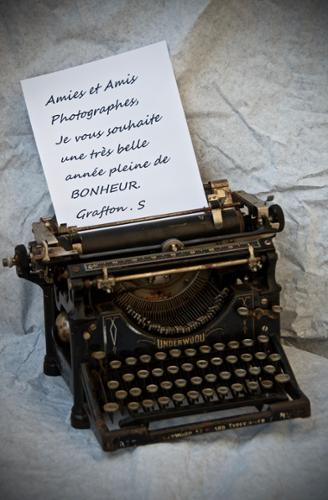 Amies et Amis
Photographes,
Je vous souhaite
une très belle
année pleine de
BONHEUR.
Grafton . S
UNDERWOOD